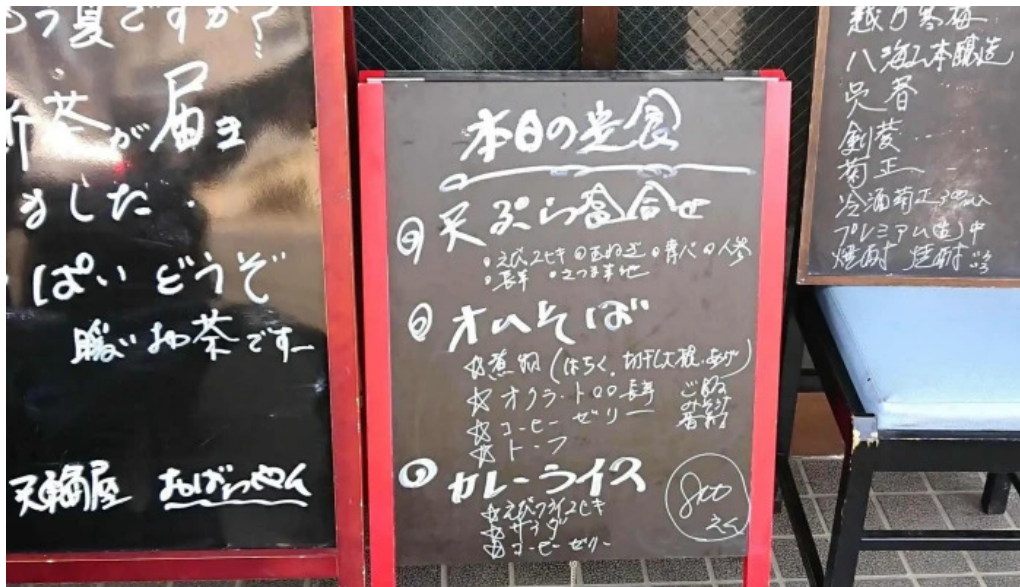 もう夏ですか?
新茶が届き
ました.
ぱいどうぞ
暖いお茶ですー
天輪屋 おばちゃん
本日の定食
天ぷら盛合せ
・えび2ヒキ ・玉ねぎ ・青べ ・人参
・長芋 ・さつま芋 他
オムそば
☆煮物(はちく、切干し大根、あげ)
☆オクラ・トロロ長芋
☆コーヒーゼリー
☆トーフ
ごはん
みそ汁
香物
カレーライス
☆えびフライ2ヒキ
☆サラダ
☆コーヒーゼリー
800
えん
越乃寒梅
八海山本醸造
呉春
剣菱
菊正
冷酒菊正300ml
プレミアム(缶)中
焼酎 焼酎